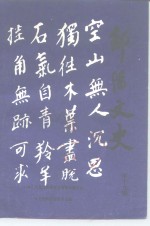 空山無人沉思
獨往木葉盡脫
石氣自青羚羊
挂角無跡可求